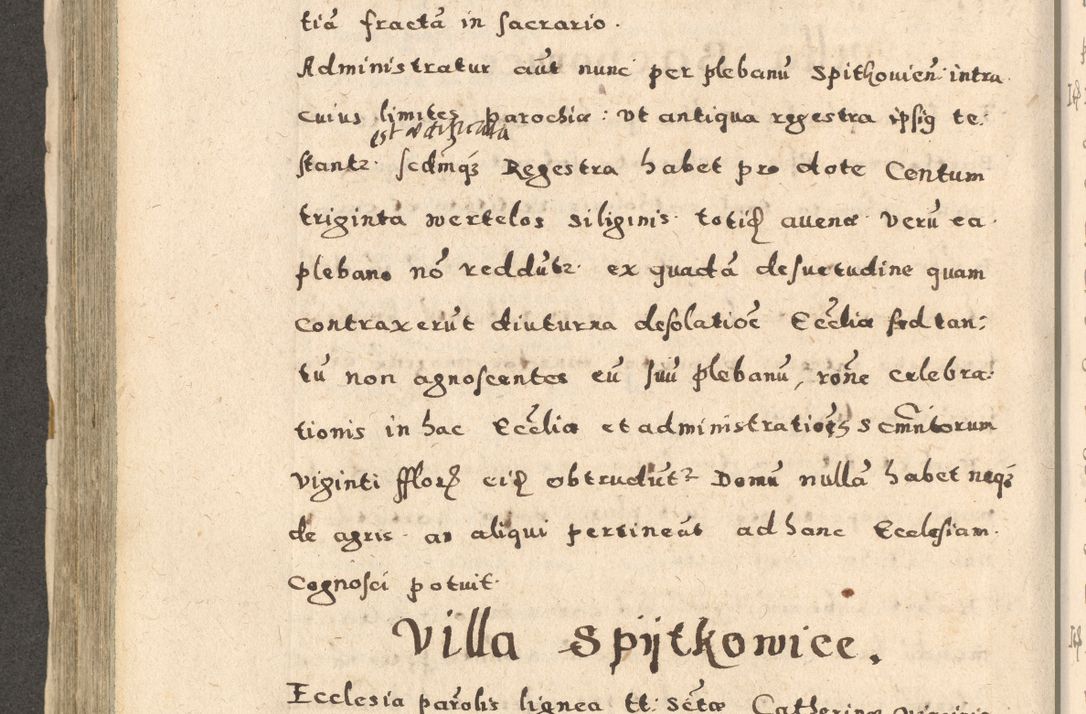 tiã fractã in sacrario.
Administratur aūt nunc per plebanū Spitkovieñ: intra
cuius limites parochiæ: Ut antiqua regestra ipsiq te:
est ædificata
stantz. sedmqz Regestra habet pro dote Centum
triginta wertelos siliginis totid avenæ. Verū ea
plebano nõ reddūtz. ex quadã desuetudine quam
contraxerūt diuturna desolatiõe Eccliæ sed tan:
tū non agnoscentes eū suū plebanū, rõne celebra:
tionis in hac Ecclia et administrationis Scmñtorum
viginti fflorz eid obtrudūtz Domū nullã habet neqz
de agris an aliqui pertineāt ad hanc Ecclesiam.
Cognosci potuit.
Villa Spÿtkowice.
Ecclesia parõlis lignea tt: Sctæ Catherinæ Virginis